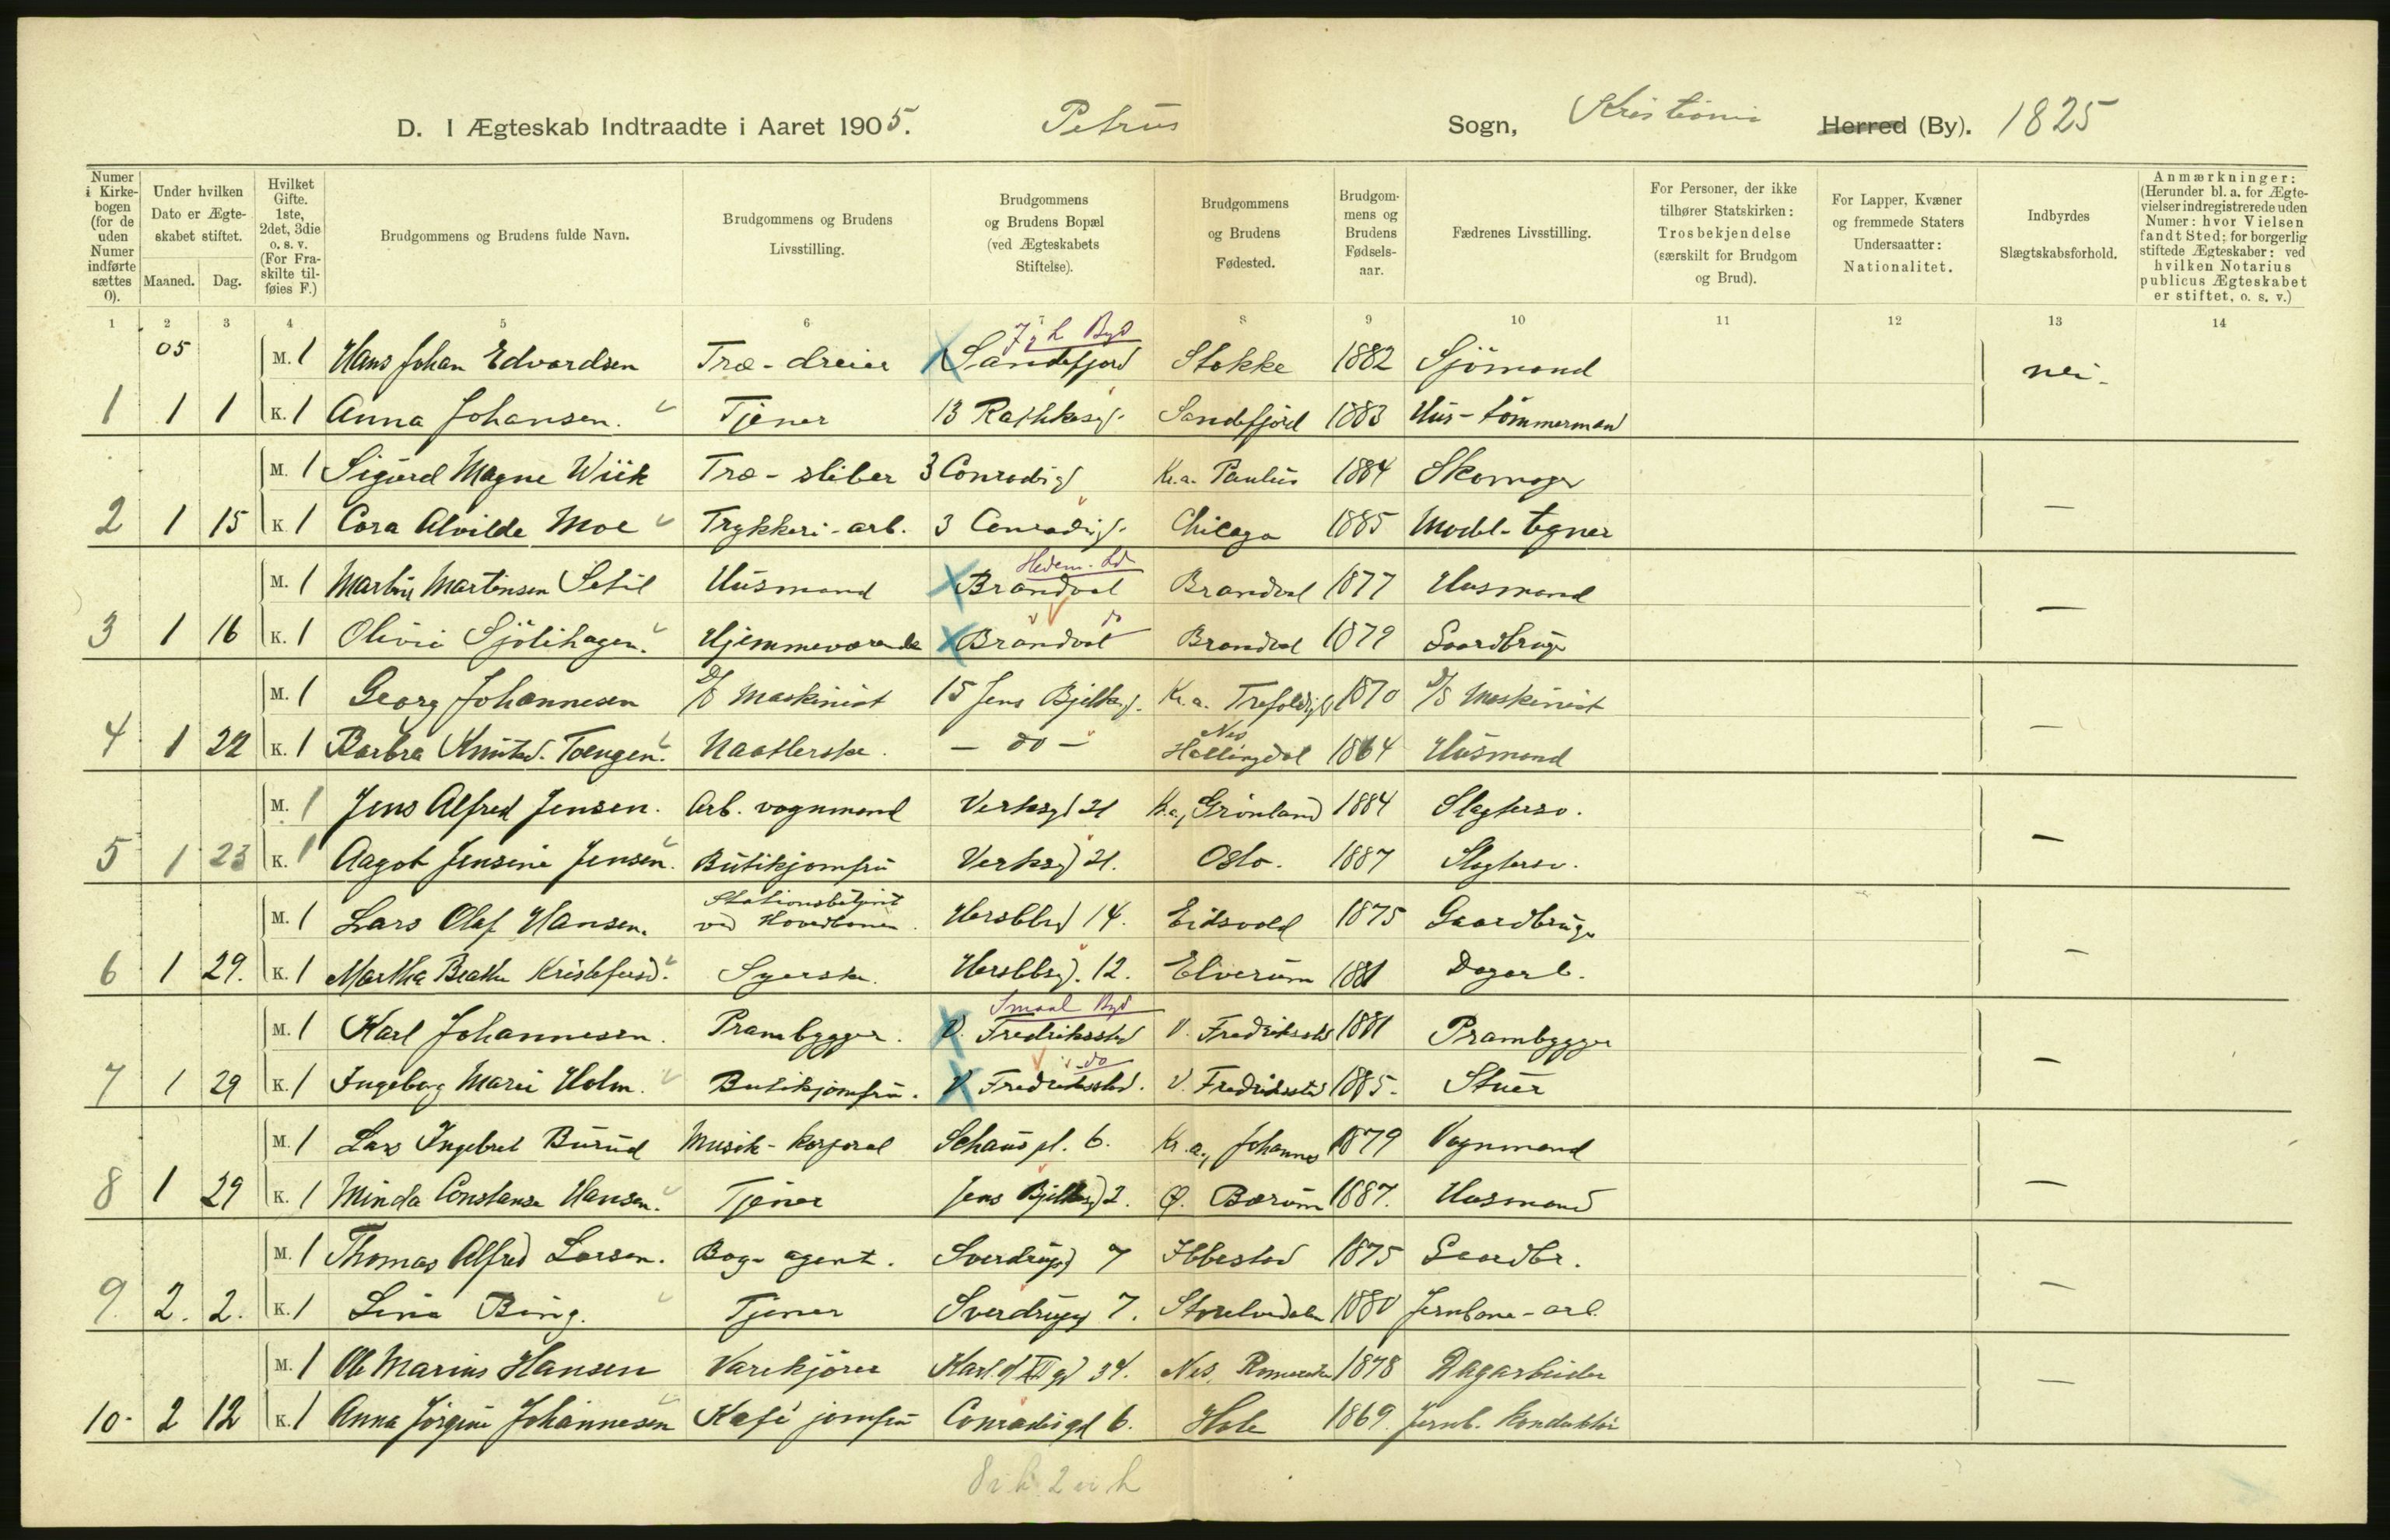 D. I Ægteskab Indtraadte i Aaret 1905. Petrus Sogn, Kristiania Herred (By). 1825
Numer i Kirkebogen (for de uden Numer indførte sættes 0).
Under hvilken Dato er Ægteskabet stiftet.
Maaned. Dag.
Hvilket Gifte. 1ste, 2det, 3die o. s. v. (For Fraskilte tilføies F.)
Brudgommens og Brudens fulde Navn.
Brudgommens og Brudens Livsstilling.
Brudgommens og Brudens Bopæl (ved Ægteskabets Stiftelse).
Brudgommens og Brudens Fødested.
Brudgommens og Brudens Fødselsaar.
Fædrenes Livsstilling.
For Personer, der ikke tilhører Statskirken: Trosbekjendelse (særskilt for Brudgom og Brud).
For Lapper, Kvæner og fremmede Staters Undersaatter: Nationalitet.
Indbyrdes Slægtskabsforhold.
Anmærkninger: (Herunder bl. a. for Ægtevielser indregistrerede uden Numer: hvor Vielsen fandt Sted; for borgerlig stiftede Ægteskaber: ved hvilken Notarius publicus Ægteskabet er stiftet, o. s. v.)
1 2 3 4 5 6 7 8 9 10 11 12 13 14
05 M. 1 Hans Johan Edvardsen Træ-dreier Sandefjord Stokke 1882 Sjömand nei-
1 1 1 K. 1 Anna Johansen. Tjener 13 Rathkesg. Sandefjord 1883 Hus-tömmermand
M. 1 Sigurd Magne Wiik Træ-sliber 3 Conradisg Kr.a. Paulus 1884 Skomager
2 1 15 K. 1 Cora Alvilde Moe Trykkeri-arb. 3 Conradisg. Chicago 1885 Model-tegner —
Hedem.
M. 1 Martin Martinsen Husmand Brandval Brandval 1877 Husmand
do
3 1 16 K. 1 Olivia Sjölihagen. Hjemmeværende Brandval Brandval 1879 Gaardbruger —
M. 1 Georg Johannesen D/S Maskinist 15 Jens Bjelkesg. Kr.a. Trefoldigh 1870 D/S Maskinist
4 1 22 K. 1 Barbra Knutsd. Toengen. Naatlerske. — do — Nes Hallingdal 1864 Husmand —
M. 1 Jens Alfred Jensen. Arb. vognmand Verksg 21 Kr.a., Grönland 1884 Slagtersv.
5 1 23 K. 1 Aagot Jensine Jensen. Butikjomfru Verksg 21. Oslo. 1887 Slagtersv. —
M. 1 Lars Olaf Hansen. Stationsbetjent ved Hovedbanen. Herslebsg 14. Eidsvold 1875 Gaardbruger
6 1 29. K. 1 Martha Beathe Kristofersd. Syerske. Herslebsg. 12. Elverum 1881 Dagarb. —
Smaal Byd
M. 1 Karl Johannesen. Prambygger. V. Fredriksstad V. Fredriksstad 1881 Prambygger
do
7 1 29 K. 1 Ingeborg Marie Holm. Butikjomfru. V. Fredriksstad. V. Fredriksstad 1885. Stuer —
M. 1 Lars Ingebret Burud Musik-korporal Schaus pl. 6. Kr.a., Johannes 1879 Vognmand
8 1 29 K. 1 Minda Constanse Hansen. Tjener Jens Bjelkesg 2. Ø. Bærum 1887. Husmand —
M. 1 Thomas Alfred Larsen. Bog-agent. Sverdrupsg 7 Ibbestad 1875 Gaardbr.
9. 2. 2. K. 1 Lina Bing. Tjener Sverdrupsg 7. Storelvedalen 1880 Jernbane-arb. —
M. 1 Ole Marius Hansen Varekjörer Karl d XII gd 34. Nes, Romerike 1878 Dagarbeider
10- 2 12 K. 1 Anna Jörgine Johannesen Kafé jomfru Conradisgd 6. Hole 1869. Jernb. konduktör —